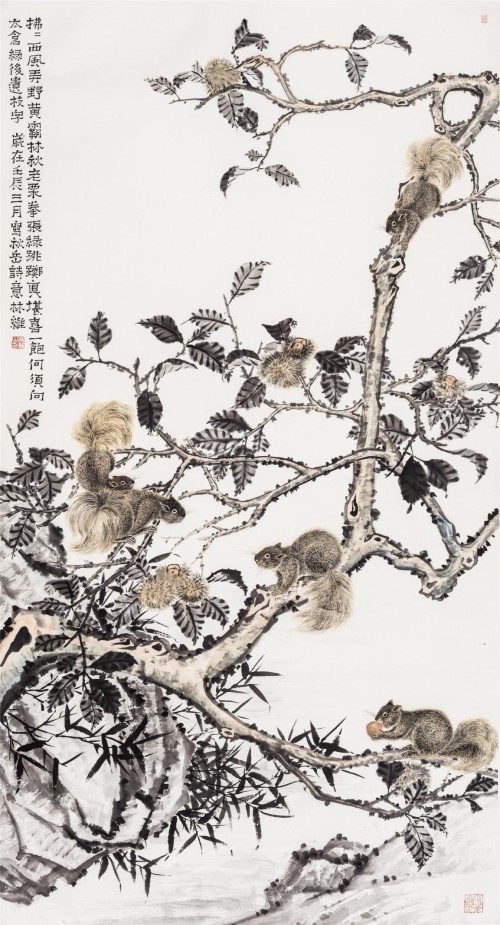 拂二西風弄野黄霜林秋老栗拳張緣跳躑真堪喜一飽何須向
太倉緣後遺枝字 歲在壬辰三月寫秋岳詩意林